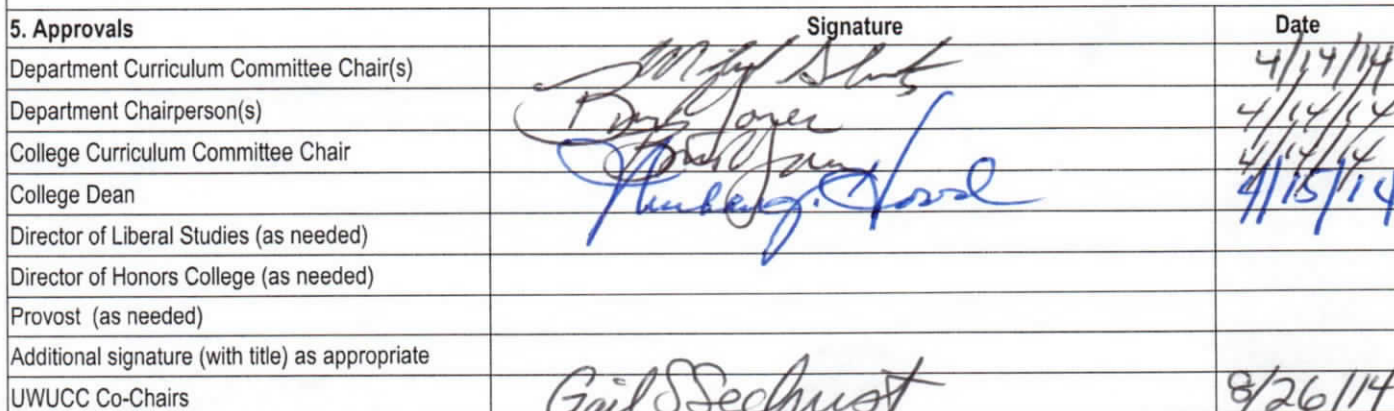 5. Approvals Signature Date
Department Curriculum Committee Chair(s) 4/14/14
Department Chairperson(s) 4/14/14
College Curriculum Committee Chair 4/14/14
College Dean 4/15/14
Director of Liberal Studies (as needed)
Director of Honors College (as needed)
Provost (as needed)
Additional signature (with title) as appropriate
UWUCC Co-Chairs Gail S Sechrist 8/26/14